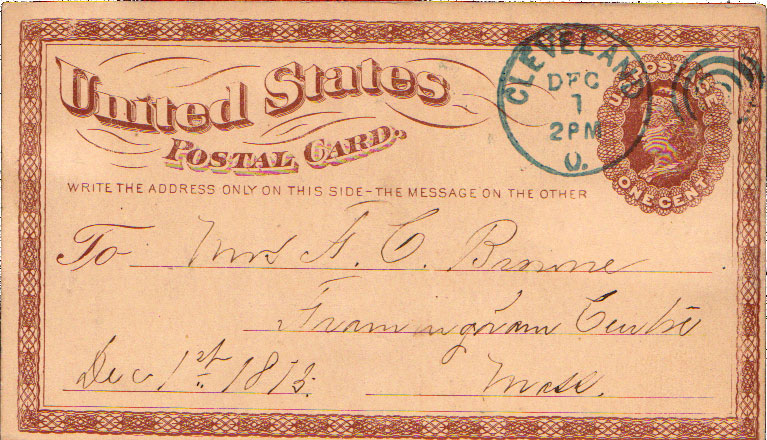 United States
POSTAL CARD.
WRITE THE ADDRESS ONLY ON THIS SIDE–THE MESSAGE ON THE OTHER
CLEVELAND
DEC
1
2PM
O.
U.S. POSTAGE
ONE CENT
To Mrs F. C. Browne
Framingham Centre
Mass.
Dec 1st 1873.